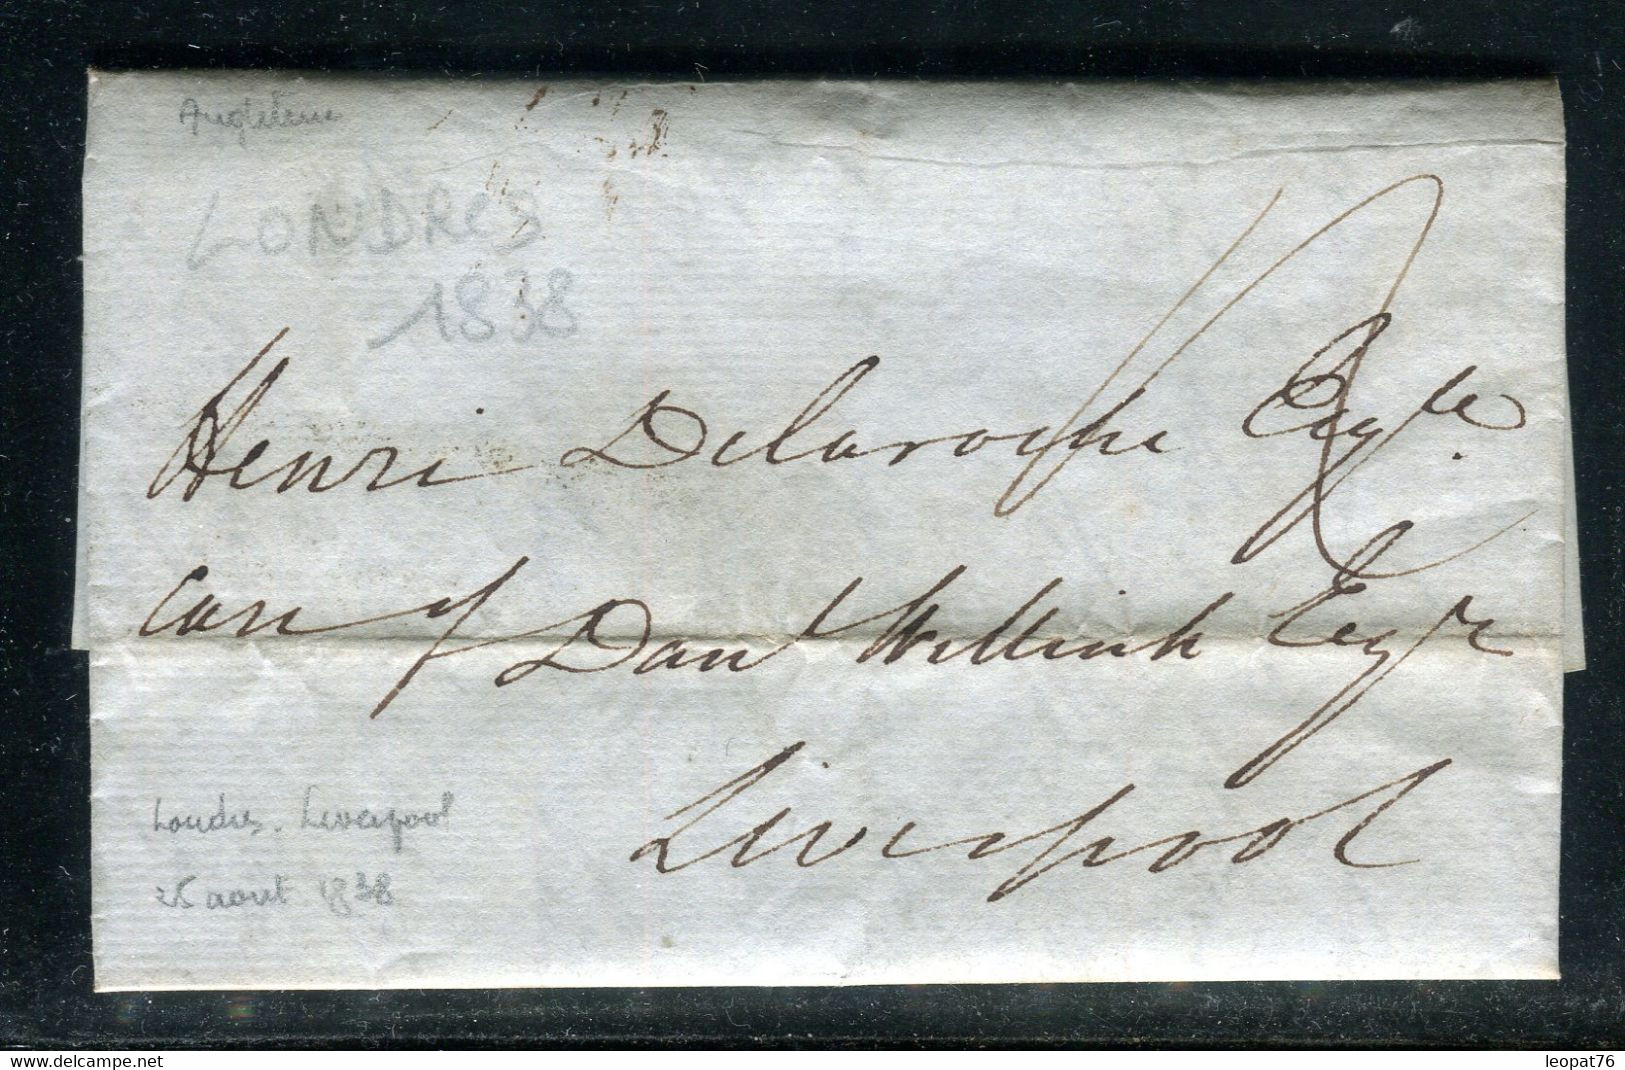 Angleterre
LONDRES
1838
Henri Delaroche Esqre.
care of Danl Willink Esqre
Liverpool
Londres. Liverpool
25 aout 1838
delcampe.net
leopat76